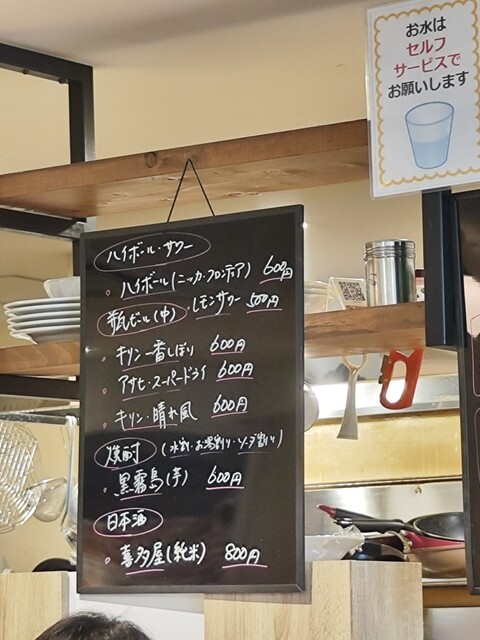 お水は
セルフ
サービスで
お願いします
ハイボール・サワー
・ハイボール(ニッカ・フロンティア) 600円
・レモンサワー 500円
瓶ビール(中)
・キリン一番しぼり 600円
・アサヒ・スーパードライ 600円
・キリン・晴れ風 600円
焼酎 (水割・お湯割り・ソーダ割り)
・黒霧島(芋) 600円
日本酒
・喜多屋(純米) 800円